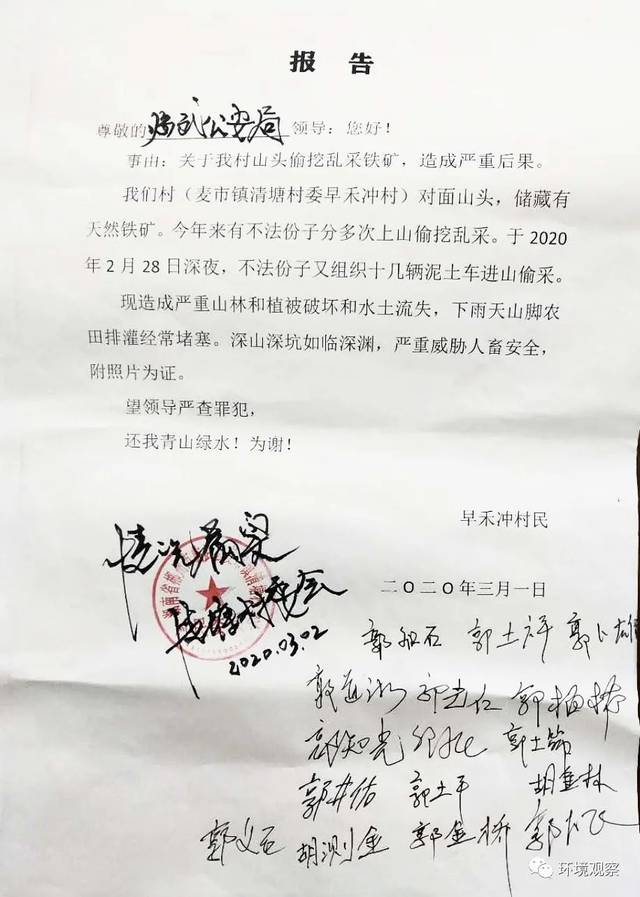 报 告
尊敬的临武公安局领导：您好！
事由：关于我村山头偷挖乱采铁矿，造成严重后果。
我们村（麦市镇清塘村委早禾冲村）对面山头，储藏有
天然铁矿。今年来有不法份子分多次上山偷挖乱采。于 2020
年 2 月 28 日深夜，不法份子又组织十几辆泥土车进山偷采。
现造成严重山林和植被破坏和水土流失，下雨天山脚农
田排灌经常堵塞。深山深坑如临深渊，严重威胁人畜安全，
附照片为证。
望领导严查罪犯，
还我青山绿水！为谢！
早禾冲村民
二〇二〇年三月一日
情况属实
清塘村委会
2020.03.02
湖南省
郭土祥
郭土平 胡重林
郭义石 胡测金 郭金桥 郭飞
环境观察